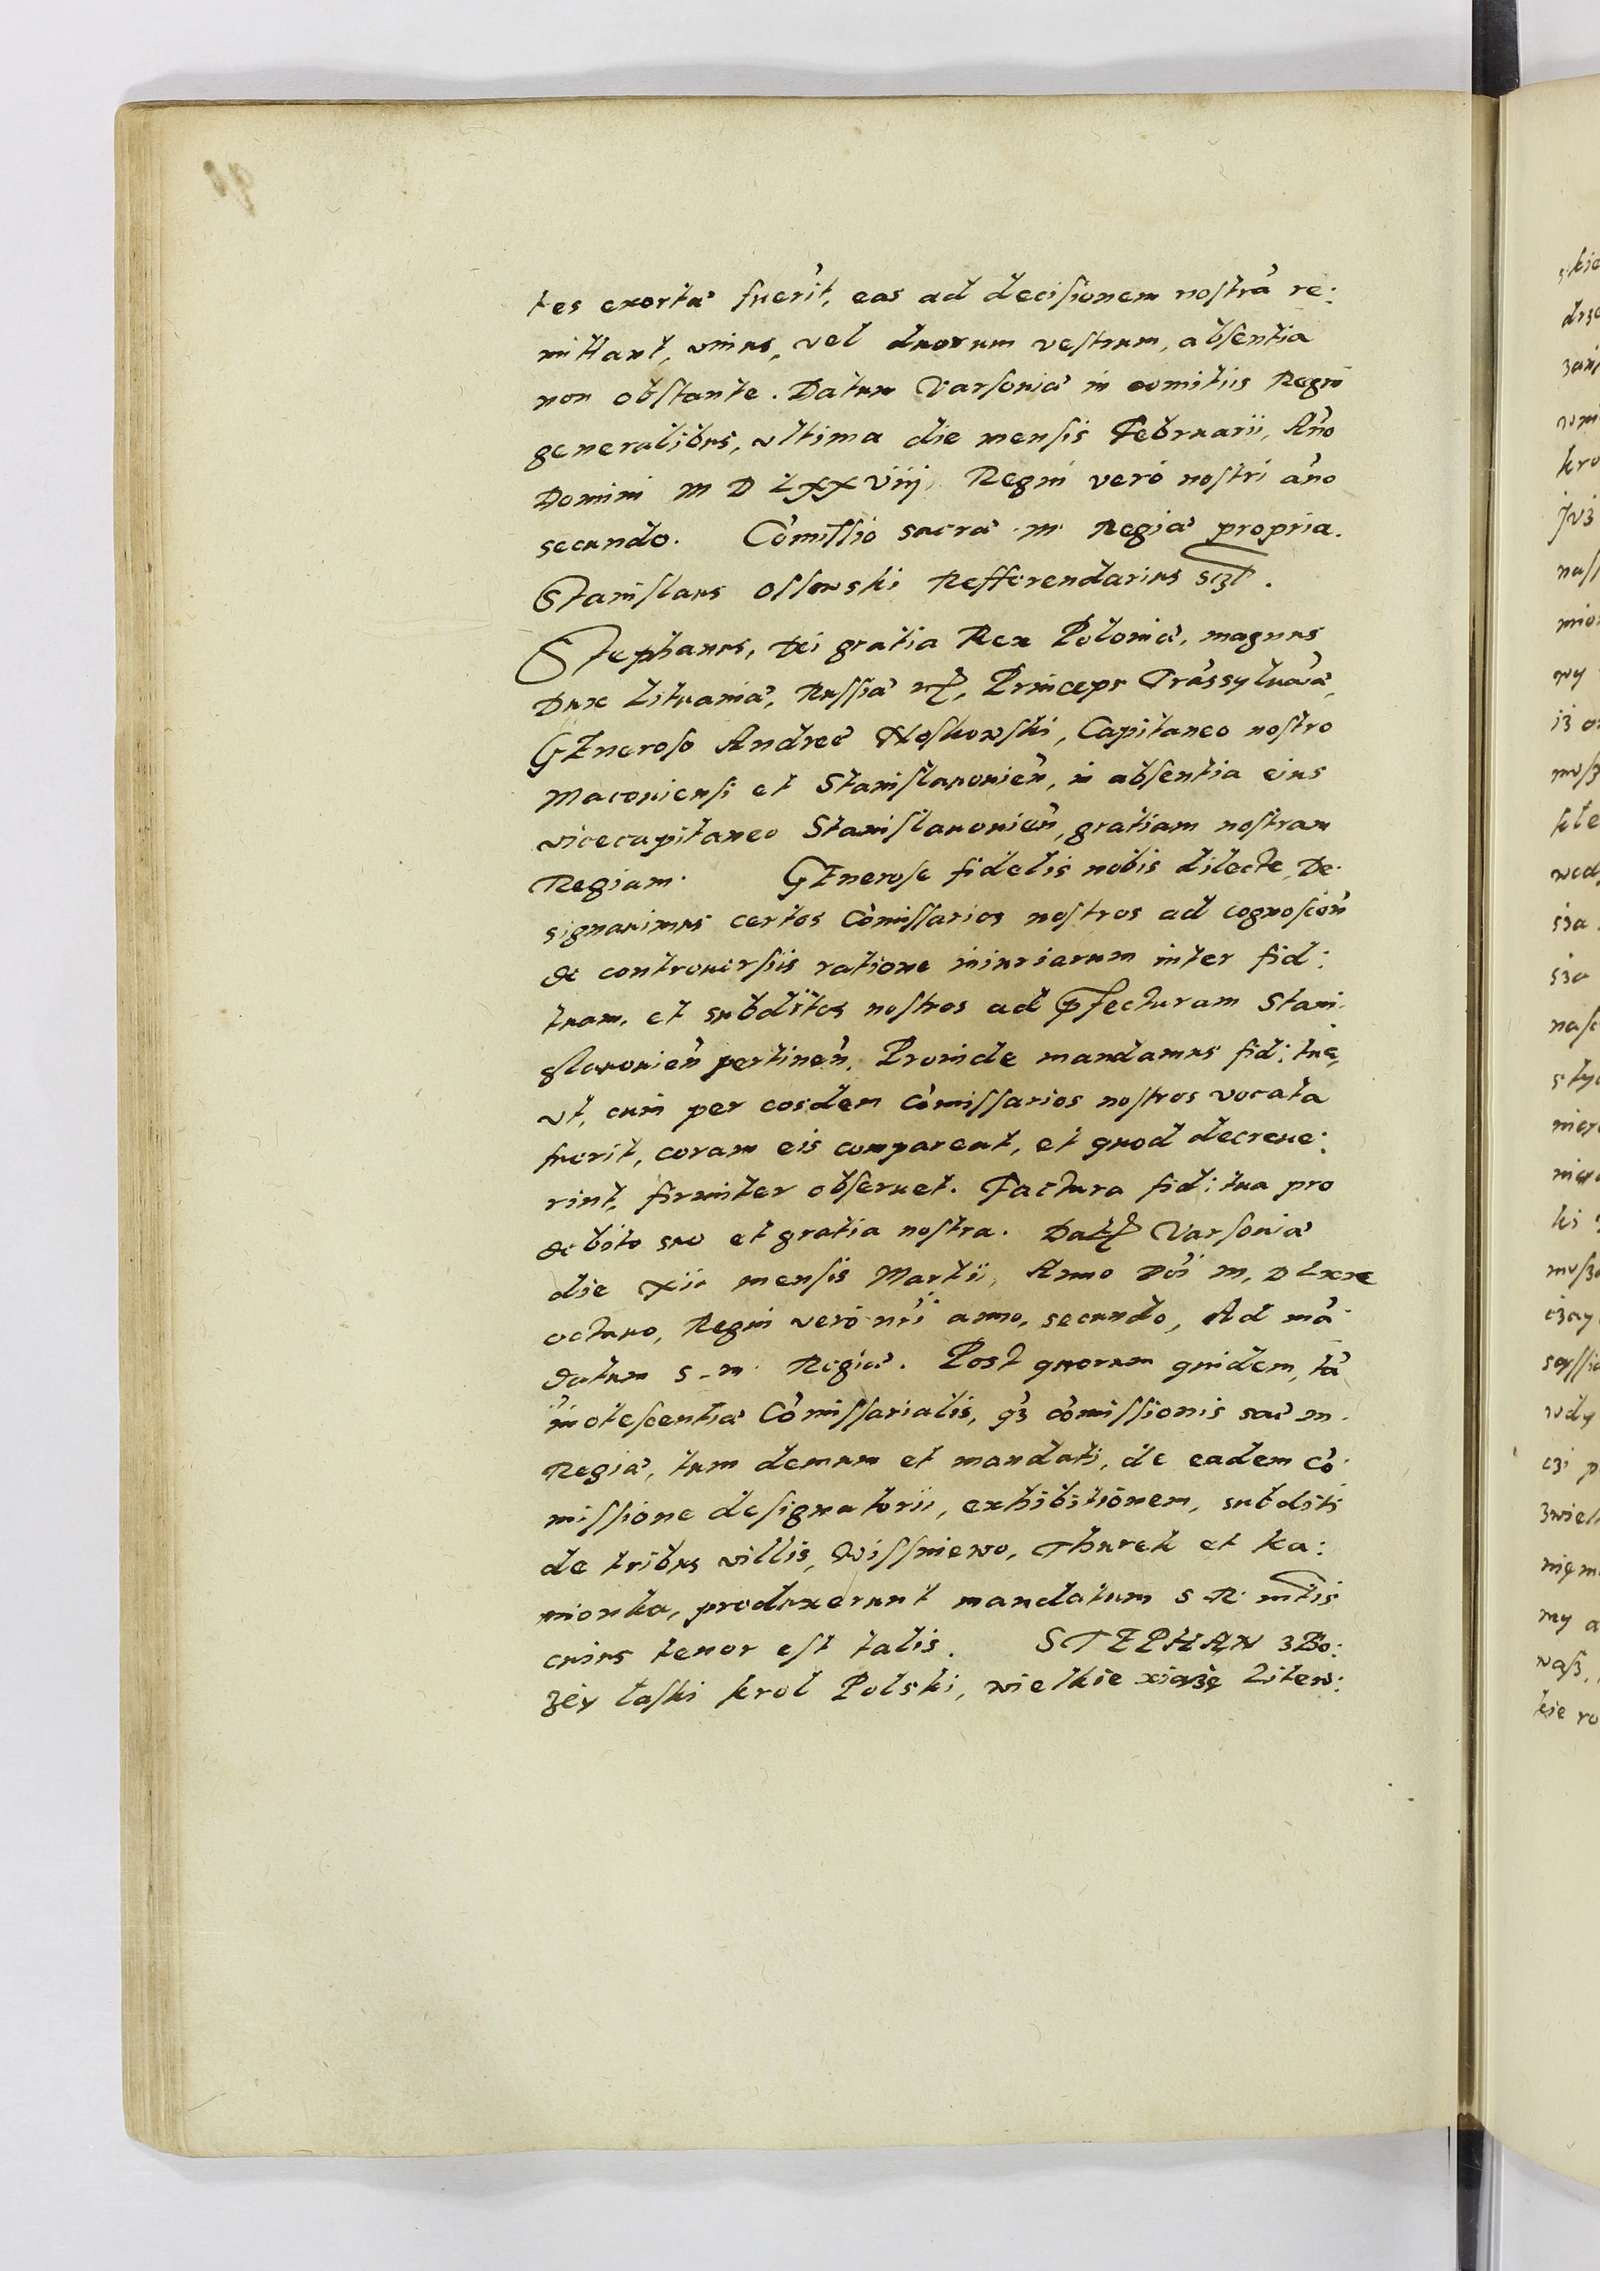 tes exortæ fuerīt, eas ad decisionem nostrā re:
mittant, vnius, vel duorum vestrum, absentia
non obstante. Datum Varsoviæ in comitiis Regni
generalibus, vltima die mensis Februarii, Año
Domini M D LXXViij, Regni vero nostri año
secundo. Cōmissio sacræ M Regiæ propria.
Stanislaus Ossowski Refferendarius
Stephanus, Dei gratia Rex Poloniæ, magnus
Dux Lituaniæ, Russiæ etc, Princeps Trāssyluaniæ,
GEneroso Andreæ Noskowski, Capitaneo nostro
Maconiensi et Stanislauonieñ, in absentia eius
vicecapitaneo Stanislauonieñ, gratiam nostram
Regiam. GEnerose fidelis nobis dilecte, De:
signauimus certos Cōmissarios nostros ad cognoscēñ
de controuersiis ratione iniuriarum inter fid:
tuam, et subditos nostros ad pfecturam Stani:
slauonieñ pertineñ. Proinde mandamus fid: tuæ,
vt, cum per eosdem cōmissarios nostros vocata
fuerit, coram eis compareat, et quod decreue:
rint, firmiter obseruet. Factura fid: tua pro
debito suo et gratia nostra. Dat Varsoviæ
die Xii mensis Martii, Anno Dñi M, D LXX
octauo, Regni vero nři anno, secundo, Ad mā
datum S. M. Regiæ. Post quorum quidem, tā
īnotescentiæ Cōmissarialis, q3 cōmissionis sac m.
Regiæ, tum demum et mandati, de eadem cō:
missione designatorii, exhibitionem, subditi
de tribus villis, Wissniewo, Thurek et Ka:
mionka, produxerunt mandatum S R mtis
cuius tenor est talis. STEPHAN z Bo:
zey laski krol Polski, wielkie xiąże Litew: